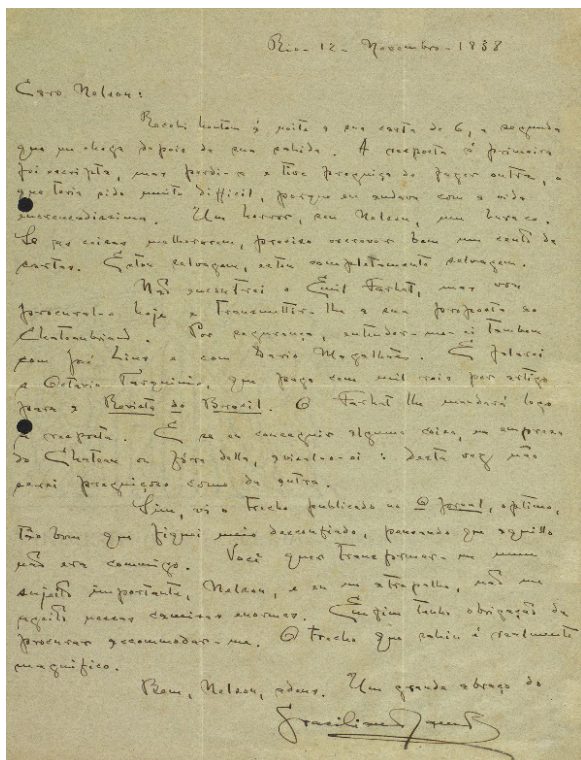 Rio - 12 - Novembro - 1938
Caro Nelson:
Recebi hontem á noite a sua carta de 6, a segunda
que me chega depois da sua sahida. A resposta á primeira
foi escripta, mas perdi-a e tive preguiça de fazer outra, o
que teria sido muito difficil, porque eu andava com a vida
encrencadissima. Um horror, seu Nelson, um buraco.
Se as coisas melhorarem, preciso escrever bem um cento de
cartas. Estou selvagem, estou completamente selvagem.
Não encontrei o Emil Farhat, mas vou
procural-o hoje e transmittir-lhe a sua proposta ao
Chateaubriand. Por segurança, entender-me-ei tambem
com José Lins e com Dario Magalhães. E falarei
a Octavio Tarquinio, que paga cem mil reis por artigo
para a Revista do Brasil. O Farhat lhe mandará logo
a resposta. E se eu conseguir alguma coisa, na empresa
do Chateau ou fóra della, avisal-o-ei: desta vez não
serei preguiçoso como da outra.
Sim, vi o trecho publicado no O Jornal, optimo,
tão bom que fiquei meio desconfiado, pensando que aquillo
não era commigo. Você quer transformar-me num
sujeito importante, Nelson, e eu me atrapalho, não me
ageito nessas camisas enormes. Emfim tenho obrigação de
procurar accommodar-me. O trecho que sahiu é realmente
magnifico.
Bem, Nelson, adeus. Um grande abraço do
Graciliano Ramos